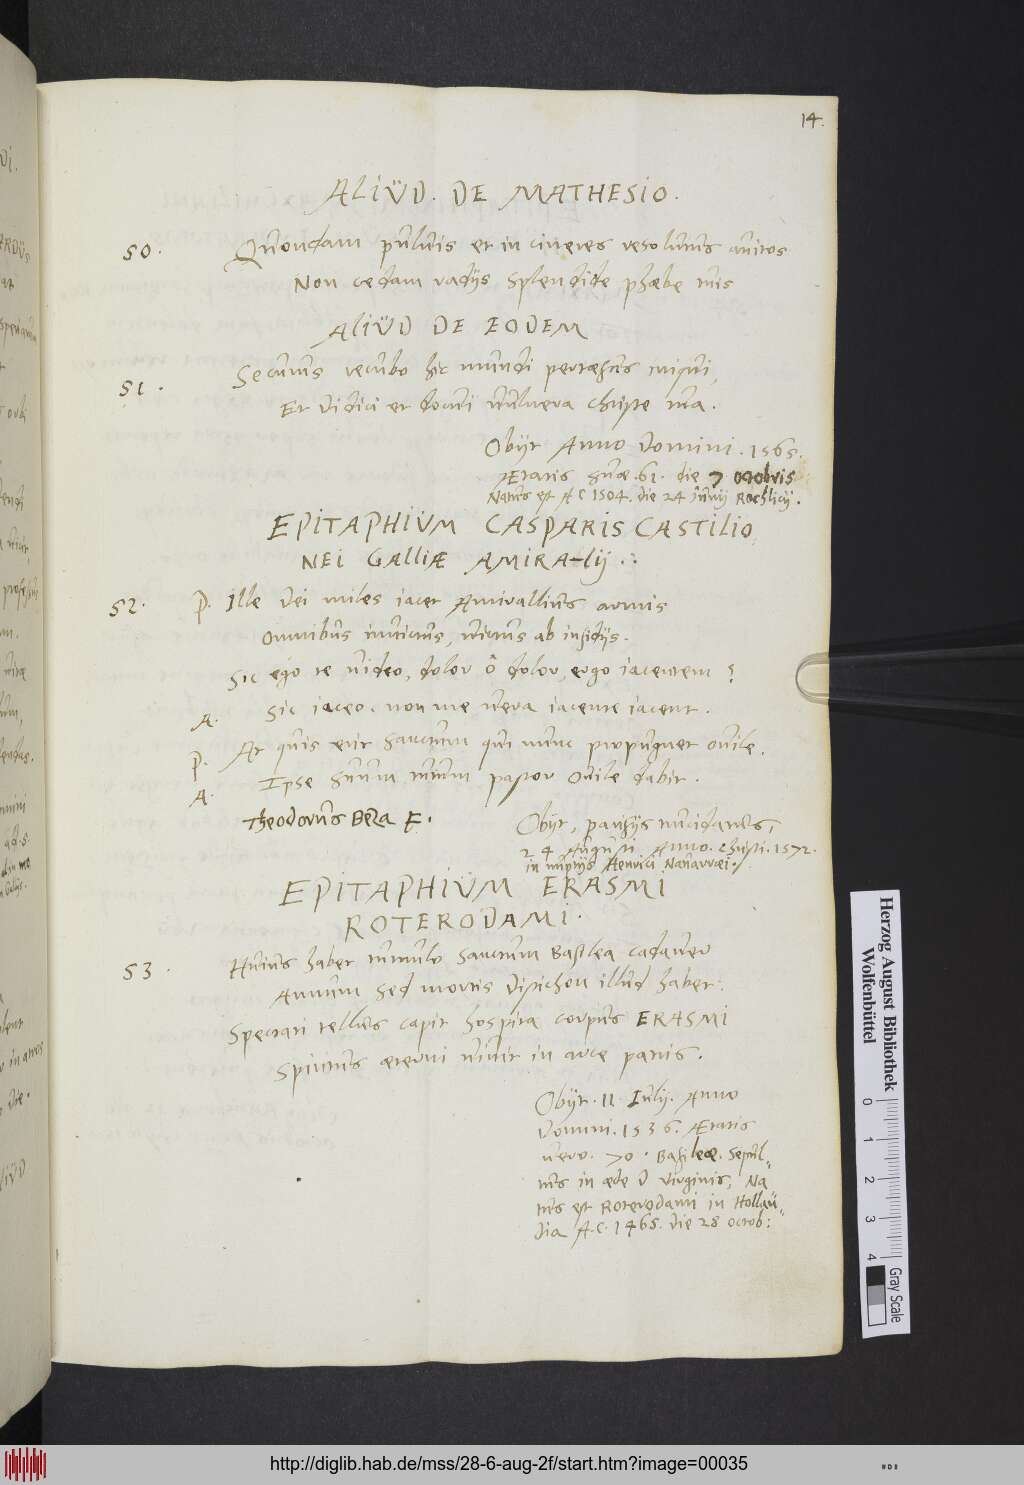 14.
ALIŨD. DE MATHESIO.
50. Quondam pulvis et in cineres resolutus avitos
Non cedam radijs splendide phœbe tuis
ALIŨD DE EODEM
51. Securus recubo hic mundi pertæsus iniqui,
Et didici et docui vulnera Christe tua.
Obijt Anno Domini. 1565.
Ætatis suæ. 61. die 7 octobris
Natus est A C 1504. die 24 iũnij Rochlicij.
EPITAPHIŨM CASPARIS CASTILIO
NEI GALLIÆ AMIRALij ∴
52. P. Ille Dei miles iacet Amirallius armis
Omnibus invictus, victus ab insidijs.
Sic ego te video, dolor ô dolor, ergo iacentem?
A. Sic iaceo. non me vera iacente iacent.
P. At quis erit sanctum qui nunc propugnet ovile.
A. Ipse suum tutum pastor ovile dabit.
Theodorus Beza F.
Obijt, parisijs trucidatus,
24 Augusti Anno. Christi. 1572.
in nuptijs Henrici Navarræi.
EPITAPHIŨM ERASMI
ROTERODAMI.
53. Huius habet tumulo sanctum Basilea cadaver
Annum sed mortis distichon illud habet.
Spectati tellus capit hospita corpus ERASMI
Spiritus æterni vivit in arce patris.
Obijt. 11. Iulij. Anno
Domini. 1536. Ætatis
vero. 70. Basileæ. Sepul„
tus in æde D virginis; Na
tus est Roterodami in Hollaũ„
dia A.C. 1465. die 28 octob:
Herzog August Bibliothek
Wolfenbüttel
0 1 2 3 4
Gray Scale
http://diglib.hab.de/mss/28-6-aug-2f/start.htm?image=00035